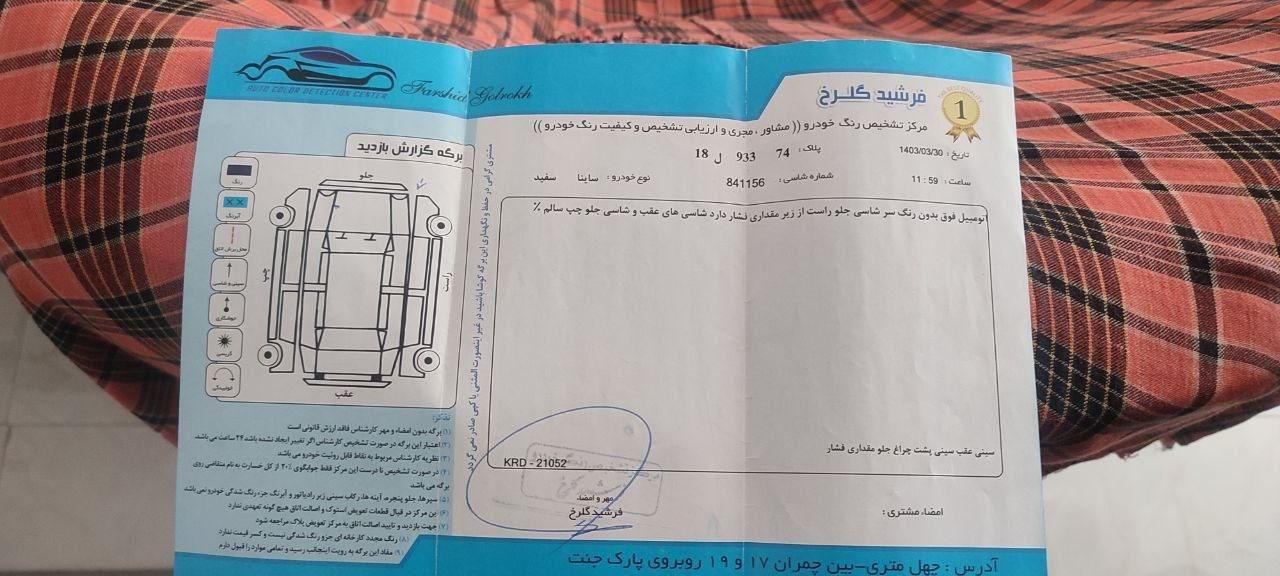 AUTO COLOR DETECTION CENTER
Farshid Golrokh
فرشید گلرخ
THE BEST QUALITY
1
مرکز تشخیص رنگ خودرو (( مشاور ، مجری و ارزیابی تشخیص و کیفیت رنگ خودرو ))
تاریخ : 1403/03/30 پلاک : 74 933 ل 18
ساعت : 11 : 59 شماره شاسی : 841156 نوع خودرو : ساینا سفید
اتومبیل فوق بدون رنگ سر شاسی جلو راست از زیر مقداری نشار دارد شاسی های عقب و شاسی جلو چپ سالم ٪
سینی عقب سینی پشت چراغ جلو مقداری فشار
KRD - 21052
مهر و امضاء
فرشید گلرخ
امضاء مشتری :
آدرس : چهل متری-بین چمران ۱۷ و ۱۹ روبروی پارک جنت
مشتری گرامی در حفظ و نگهداری این برگه کوشا باشید در غیر اینصورت المثنی یا کپی صادر نمی گردد.
برگه گزارش بازدید
جلو
راست
چپ
عقب
رنگ
آبرنگ
محل برش اتاق
سینی و شاسی
جوشکاری
گریسی
خوابیدگی
تذکر:
۱) برگه بدون امضاء و مهر کارشناس فاقد ارزش قانونی است
۲) اعتبار این برگه در صورت تشخیص کارشناس اگر تغییر ایجاد نشده باشد ۲۴ ساعت می باشد
۳) نظریه کارشناس مربوط به نقاط قابل روئیت خودرو می باشد
۴) در صورت تشخیص نا درست این مرکز فقط جوابگوی ۲۰٪ از کل خسارت به نام متقاضی روی
برگه می باشد
۵) سپرها، جلو پنجره، آینه ها، رکاب سینی زیر رادیاتور و آبرنگ جزء رنگ شدگی خودرو نمی باشد
۶) این مرکز در قبال قطعات تعویض استوک و اصالت اتاق هیچ گونه تعهدی ندارد
۷) جهت بازدید و تایید اصالت اتاق به مرکز تعویض پلاک مراجعه شود
۸) رنگ مجدد کارخانه ای جزو رنگ شدگی نیست و کسر قیمت ندارد
۹) مفاد این برگه به رویت اینجانب رسید و تمامی موارد را قبول دارم